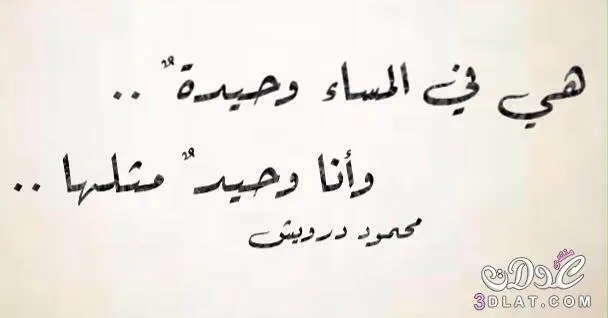 هي في المساء وحيدةٌ ..
وأنا وحيدٌ مثلها ..
محمود درويش
منتدى عدلات
3DLAT.COM